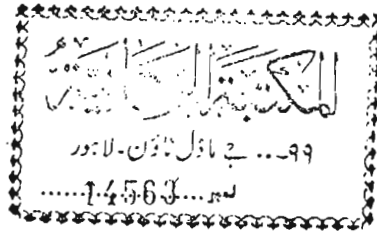 المكتبة الرحمانية
۹۹۔... جے ماڈل ٹاؤن۔ لاہور
نمبر...14563......